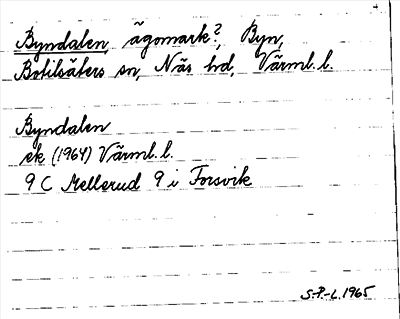 Byndalen, ägomark?, Byn,
Botilsäters sn, Näs hd, Värml. l.
Byndalen
ek (1964) Värml. l.
9 C Mellerud 9 i Forsvik
S.-P.-L. 1965